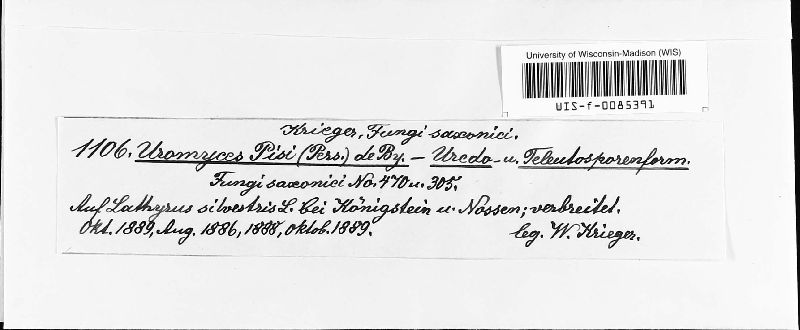 University of Wisconsin-Madison (WIS)
WIS-f-0085391
Krieger, Fungi saxonici.
1106. Uromyces Pisi (Pers.) de By. — Uredo- u. Teleutosporenform.
Fungi saxonici No. 470 u. 305.
Auf Lathyrus silvestris L. bei Königstein u. Nossen; verbreitet.
Okt. 1889, Aug. 1886, 1888, Oktob. 1889.
leg. W. Krieger.